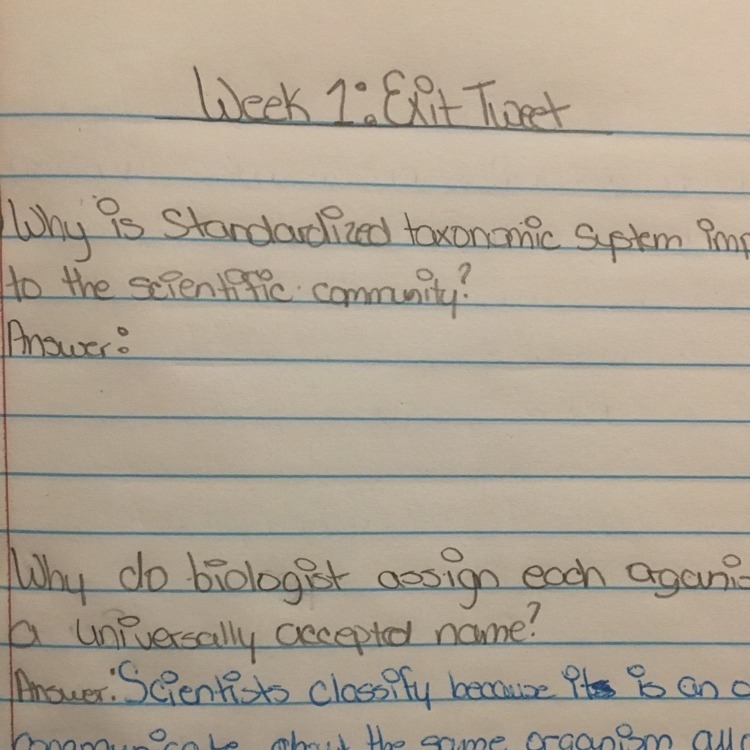 Week 1: Exit Tweet
Why is standardized taxonomic system imp
to the scientific community?
Answer:
Why do biologist assign each organis
a universally accepted name?
Answer: Scientists classify because its is an
communicate about the same organism all